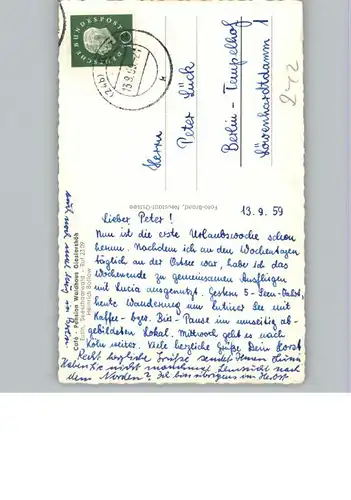 DEUTSCHE BUNDESPOST
10
13.9.59
Herrn
Peter Lück
Berlin - Tempelhof
Löwenhardtdamm 1
Foto-Brand, Neustadt-Ostsee
Café - Pension Waldhaus Griebelsee
Heinrich Bollow
13. 9. 59
Lieber Peter!
Nun ist die erste Urlaubswoche schon
herum. Nachdem ich an den Wochentagen
täglich an der Ostsee war, habe ich das
Wochenende zu gemeinsamen Ausflügen
mit Lucia ausgenutzt. Gestern 5-Seen-Fahrt,
heute Wanderung am Eutiner See mit
Kaffee- bzw. Bier-Pause im umseitig ab-
gebildeten Lokal. Mittwoch geht es nach
Köln weiter. Viele herzliche Grüße Dein Horst
Recht herzliche Grüße sendet Ihnen
Haben Sie nicht manchmal Sehnsucht nach
dem Norden? Ich bin übrigens im Herbst